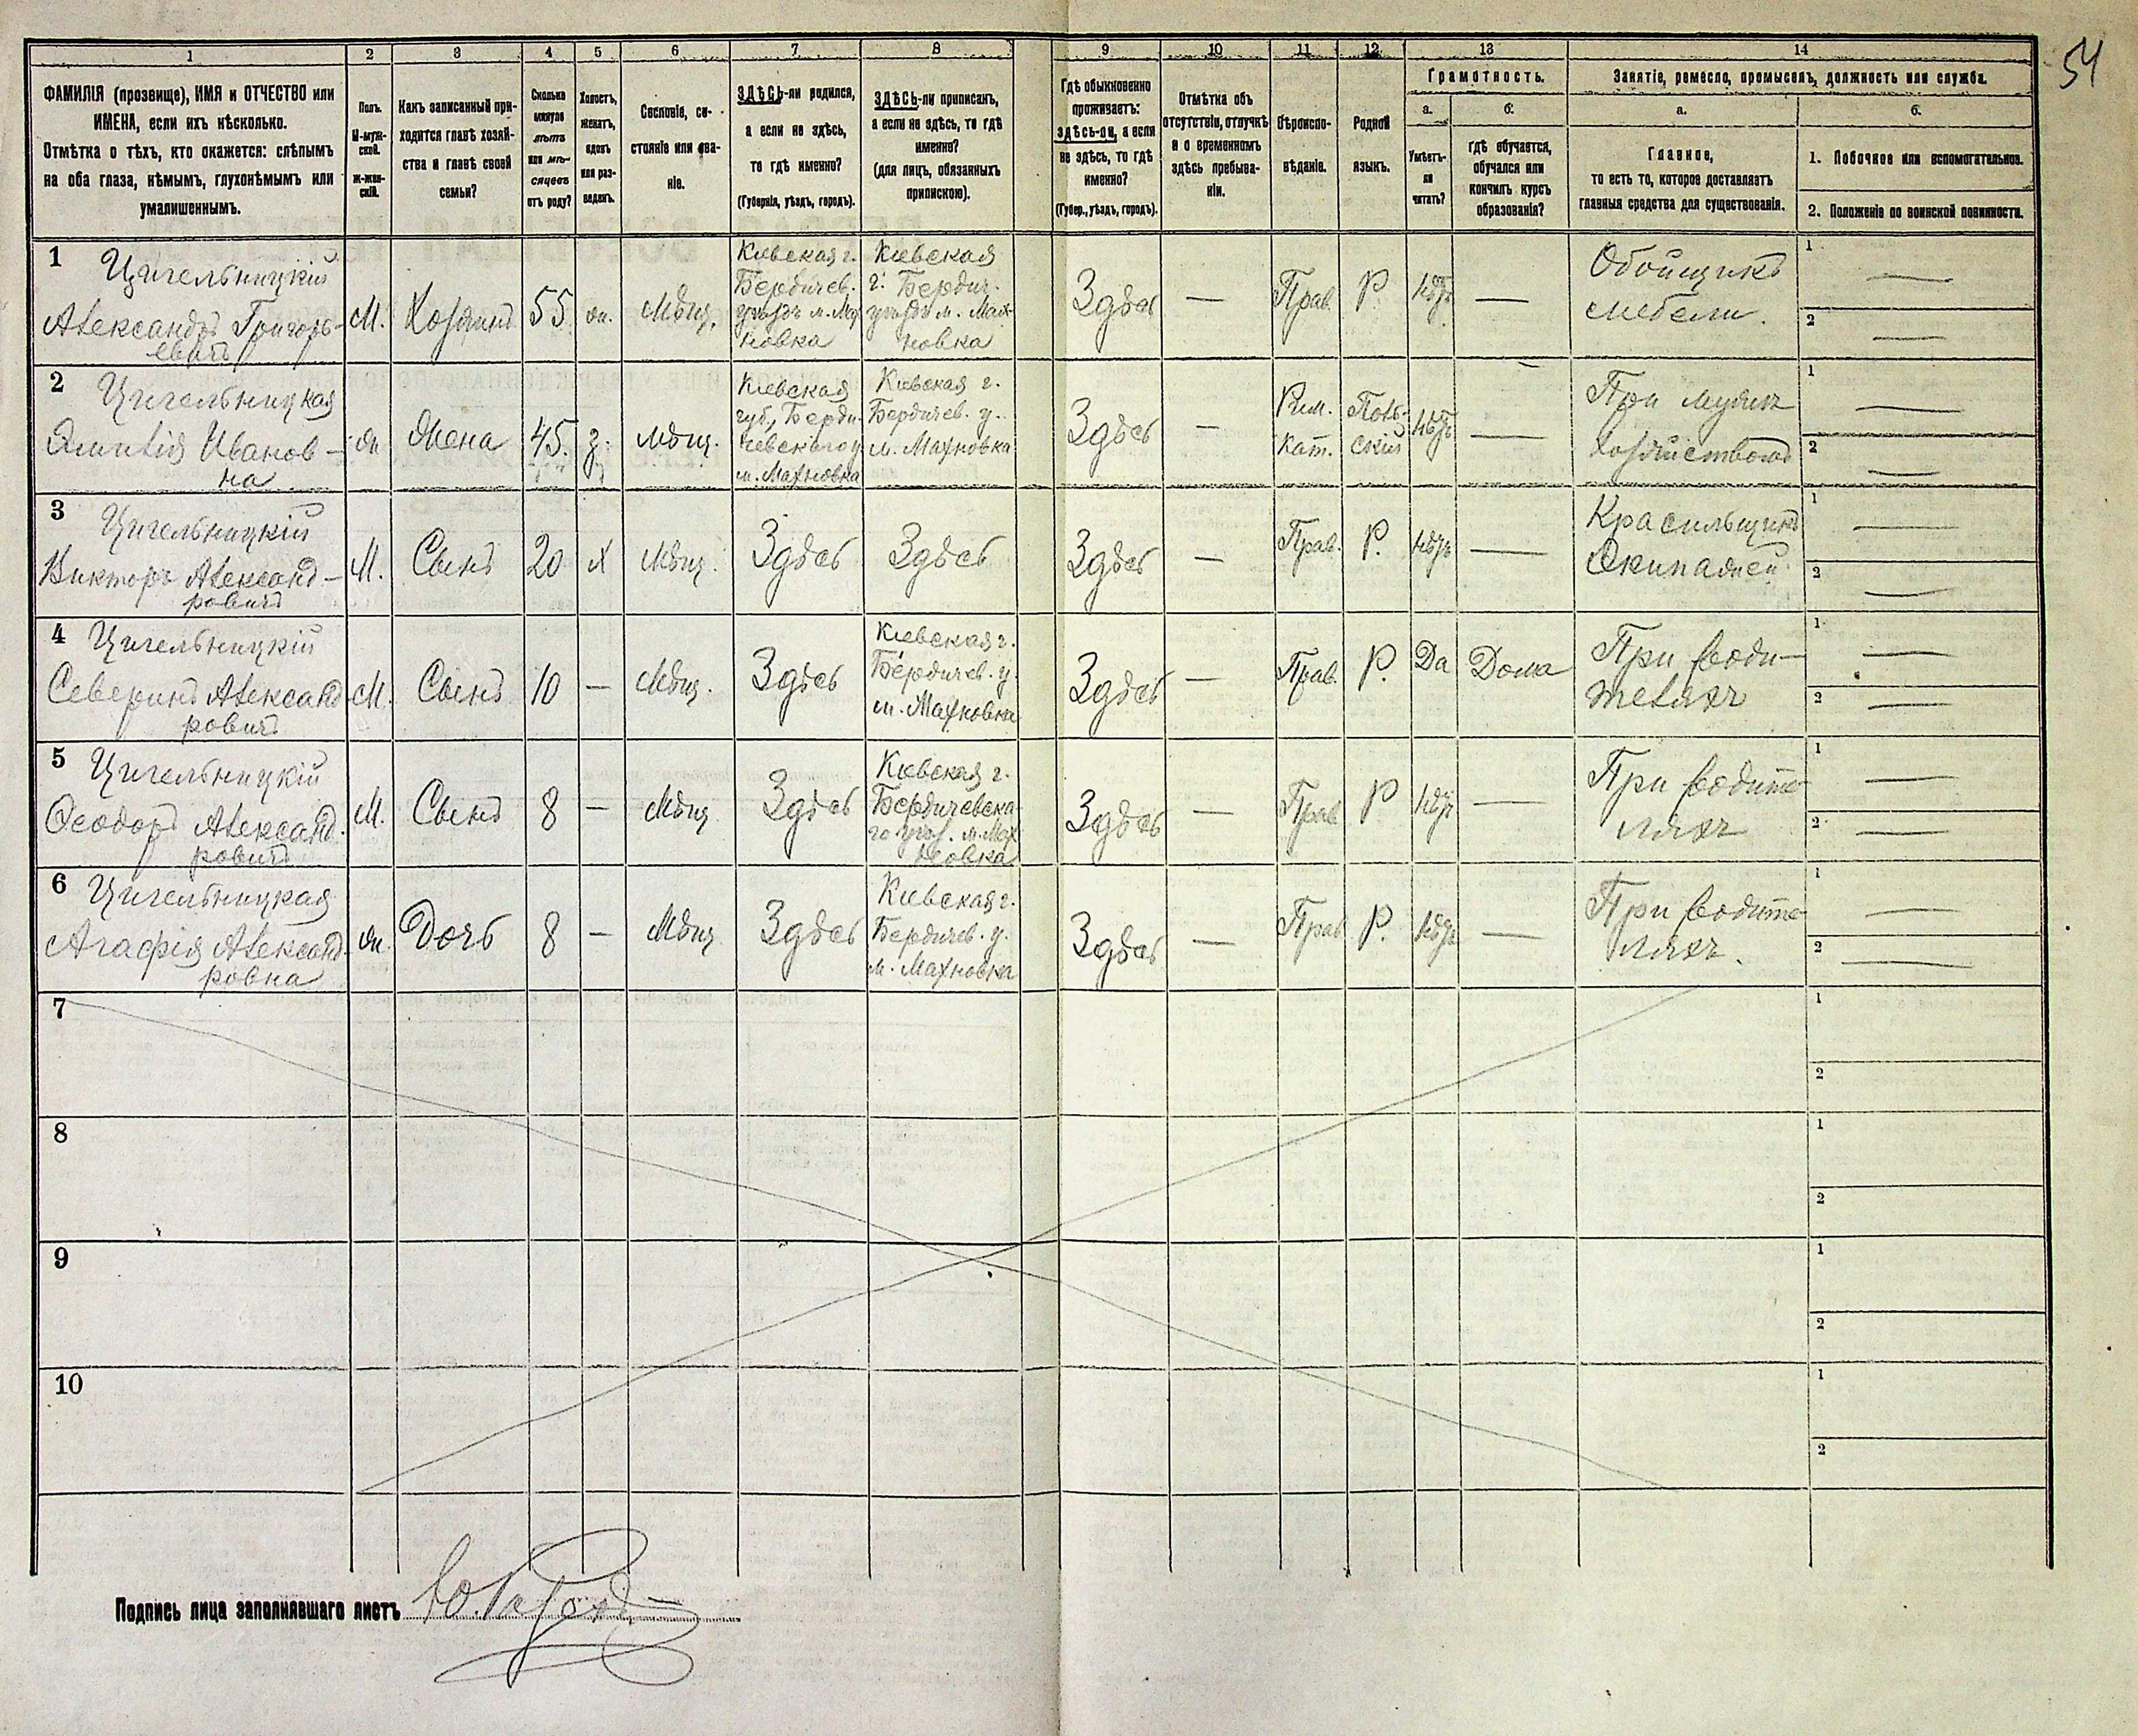 54
1
2
3
4
5
6
7
8
9
10
11
12
13
14
ФАМИЛІЯ (прозвище), ИМЯ и ОТЧЕСТВО или
ИМЕНА, если ихъ нѣсколько.
Отмѣтка о тѣхъ, кто окажется: слѣпымъ
на оба глаза, нѣмымъ, глухонѣмымъ или
умалишеннымъ.
Полъ.
М-муж-
ской.
Ж-жен-
скій.
Какъ записанный при-
ходится главѣ хозяй-
ства и главѣ своей
семьи?
Сколько
минуло
лѣтъ
или мѣ-
сяцевъ
отъ роду?
Холостъ,
женатъ,
вдовъ
или раз-
веденъ.
Сословіе, со-
стояніе или зва-
ніе.
ЗДѢСЬ-ли родился,
а если не здѣсь,
то гдѣ именно?
(Губернія, уѣздъ, городъ).
ЗДѢСЬ-ли приписанъ,
а если не здѣсь, то гдѣ
именно?
(для лицъ, обязанныхъ
припискою).
Гдѣ обыкновенно
проживаетъ:
здѣсь-ли, а если
не здѣсь, то гдѣ
именно?
(Губер., уѣздъ, городъ).
Отмѣтка объ
отсутствіи, отлучкѣ
и о временномъ
здѣсь пребыва-
ніи.
Вѣроиспо-
вѣданіе.
Родной
языкъ.
Грамотность.
а.
б.
Умѣетъ-
ли
читать?
гдѣ обучается,
обучался или
кончилъ курсъ
образованія?
Занятіе, ремесло, промыселъ, должность или служба.
а.
б.
Главное,
то есть то, которое доставляетъ
главныя средства для существованія.
1. Побочное или вспомогательное.
2. Положеніе по воинской повинности.
1
Цигельницкій
Александръ Григорь-
евичъ
М.
Хозяинъ
55
ж.
Мѣщ.
Кіевская г.
Бердичев.
уѣздъ м. Мах
новка
Кіевская
г. Бердич.
уѣздъ м. Мах-
новка
Здѣсь
—
Прав.
Р.
нѣтъ
—
Обойщикъ
мебели.
1 —
2 —
2
Цигельницкая
Иванов-
на
ж
Жена
45.
з.
мѣщ.
Кіевская
губ., Берди-
чевскаго у.
м. Махновка
Кіевская г.
Бердичев. у.
м. Махновка
Здѣсь
—
Рим.
Кат.
Поль-
скій
нѣтъ
—
При мужѣ
хозяйствомъ
1 —
2 —
3
Цигельницкій
Викторъ Александ-
ровичъ
М.
Сынъ
20
х
Мѣщ.
Здѣсь
Здѣсь
Здѣсь
—
Прав.
Р.
нѣтъ
—
Красильщикъ
Экипажей
1 —
2 —
4
Цигельницкій
Северинъ Александ
ровичъ
М.
Сынъ
10
—
Мѣщ.
Здѣсь
Кіевская г.
Бердичев. у.
м. Махновка
Здѣсь
—
Прав.
Р.
Да
Дома
При роди-
теляхъ
1 —
2 —
5
Цигельницкій
Ѳеодоръ Александ.
ровичъ
М.
Сынъ
8
—
Мѣщ
Здѣсь
Кіевская г.
Бердичевска
го уѣз. м. Мах
новка
Здѣсь
—
Прав
Р
нѣтъ
—
При родите
ляхъ
1 —
2 —
6
Цигельницкая
Агафія Александ-
ровна
ж.
Дочь
8
—
Мѣщ
Здѣсь
Кіевская г.
Бердичев. у.
м. Махновка
Здѣсь
—
Прав
Р.
нѣтъ
—
При родите
ляхъ.
1 —
2 —
7
1
2
8
1
2
9
1
2
10
1
2
Подпись лица заполнявшаго листъ